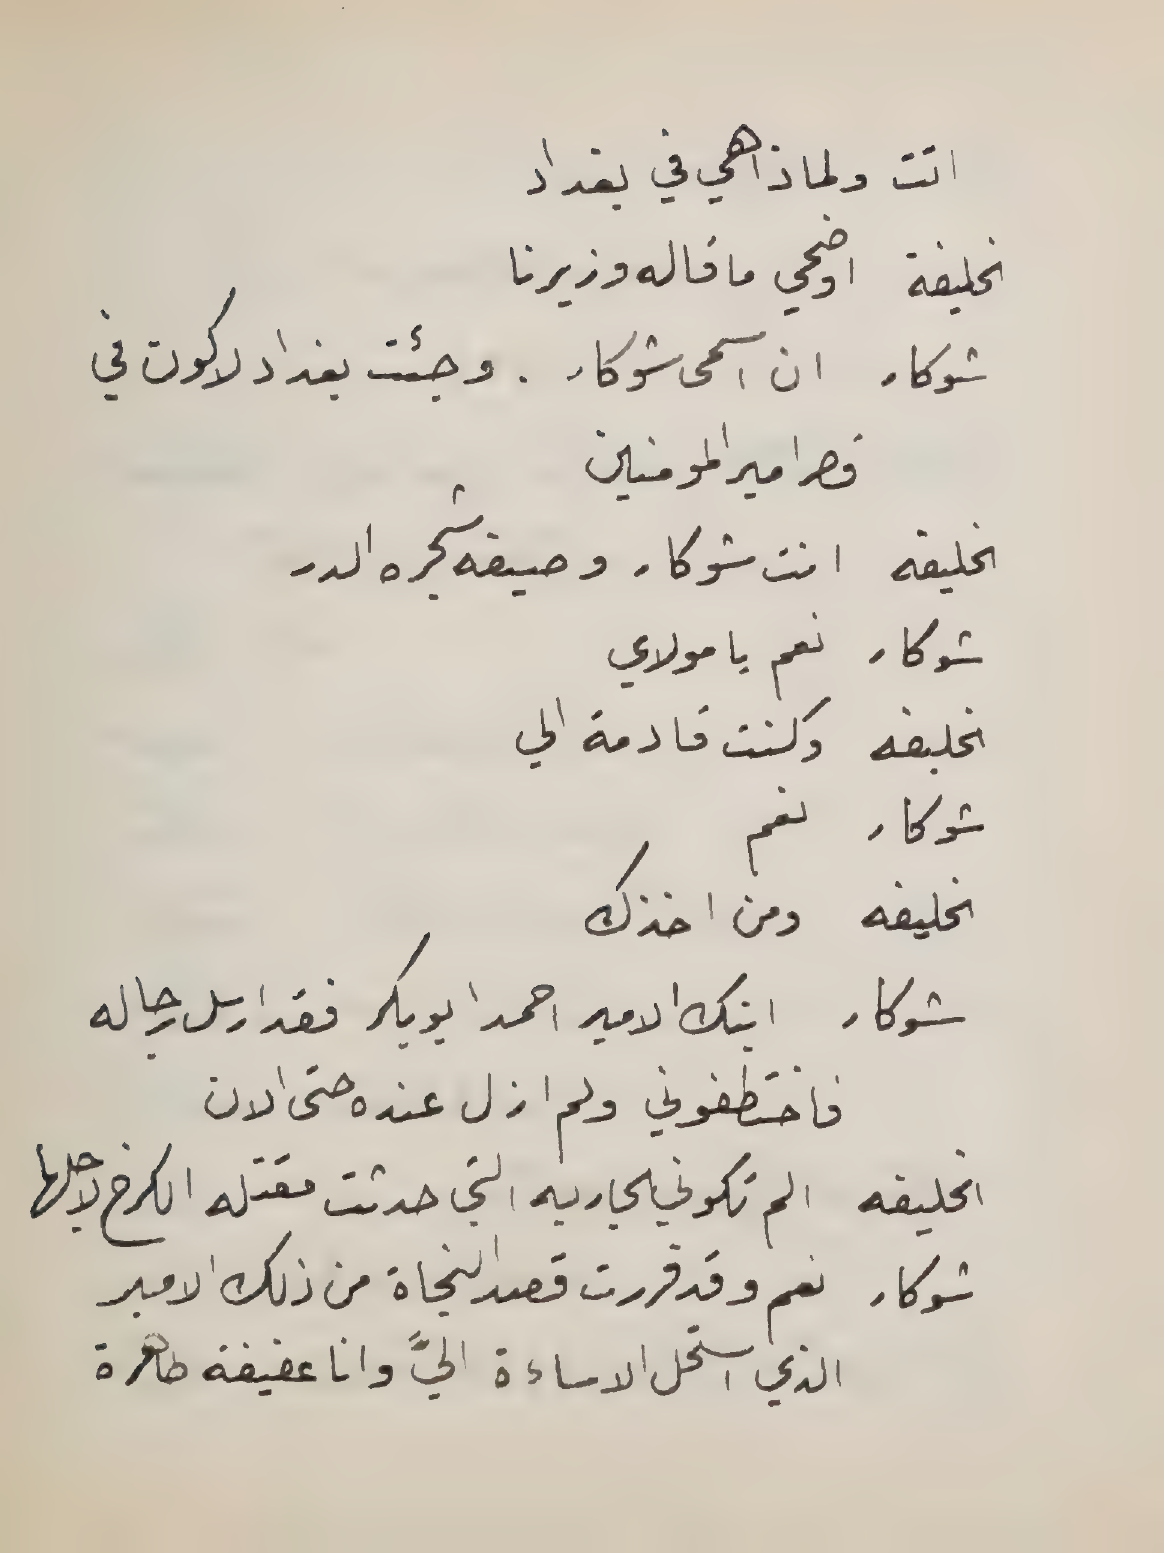 اتت ولماذا هي في بغداد
الخليفة اوضحي ما قاله وزيرنا
شوكار ان اسمى شوكار . وجئت بغداد لاكون في
قصر امير المومنين
الخليفه انت شوكار وصيفه شجره الدر
شوكار نعم يا مولاي
الخليفه وكنت قادمة الي
شوكار نعم
الخليفه ومن اخذك
شوكار ابنك الامير احمد ابو بكر فقد ارسل رجاله
فاختطفوني ولم ازل عنده حتى الان
الخليفه الم تكوني الجاريه التي حدثت مقتله الكرخ لاجلها
شوكار نعم وقد قررت قصد النجاة من ذلك الامير
الذي استحل الاساءة اليَّ وانا عفيفة طاهرة